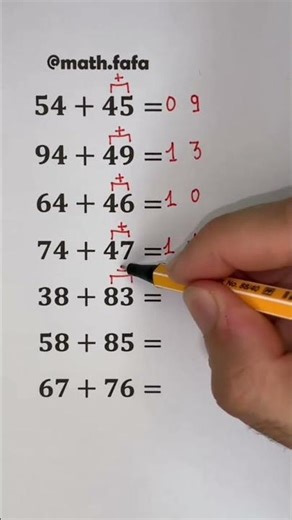 @math.fafa
+
54 + 45 = 0 9
+
94 + 49 = 1 3
+
64 + 46 = 1 0
+
74 + 47 = 1
38 + 83 =
58 + 85 =
67 + 76 =